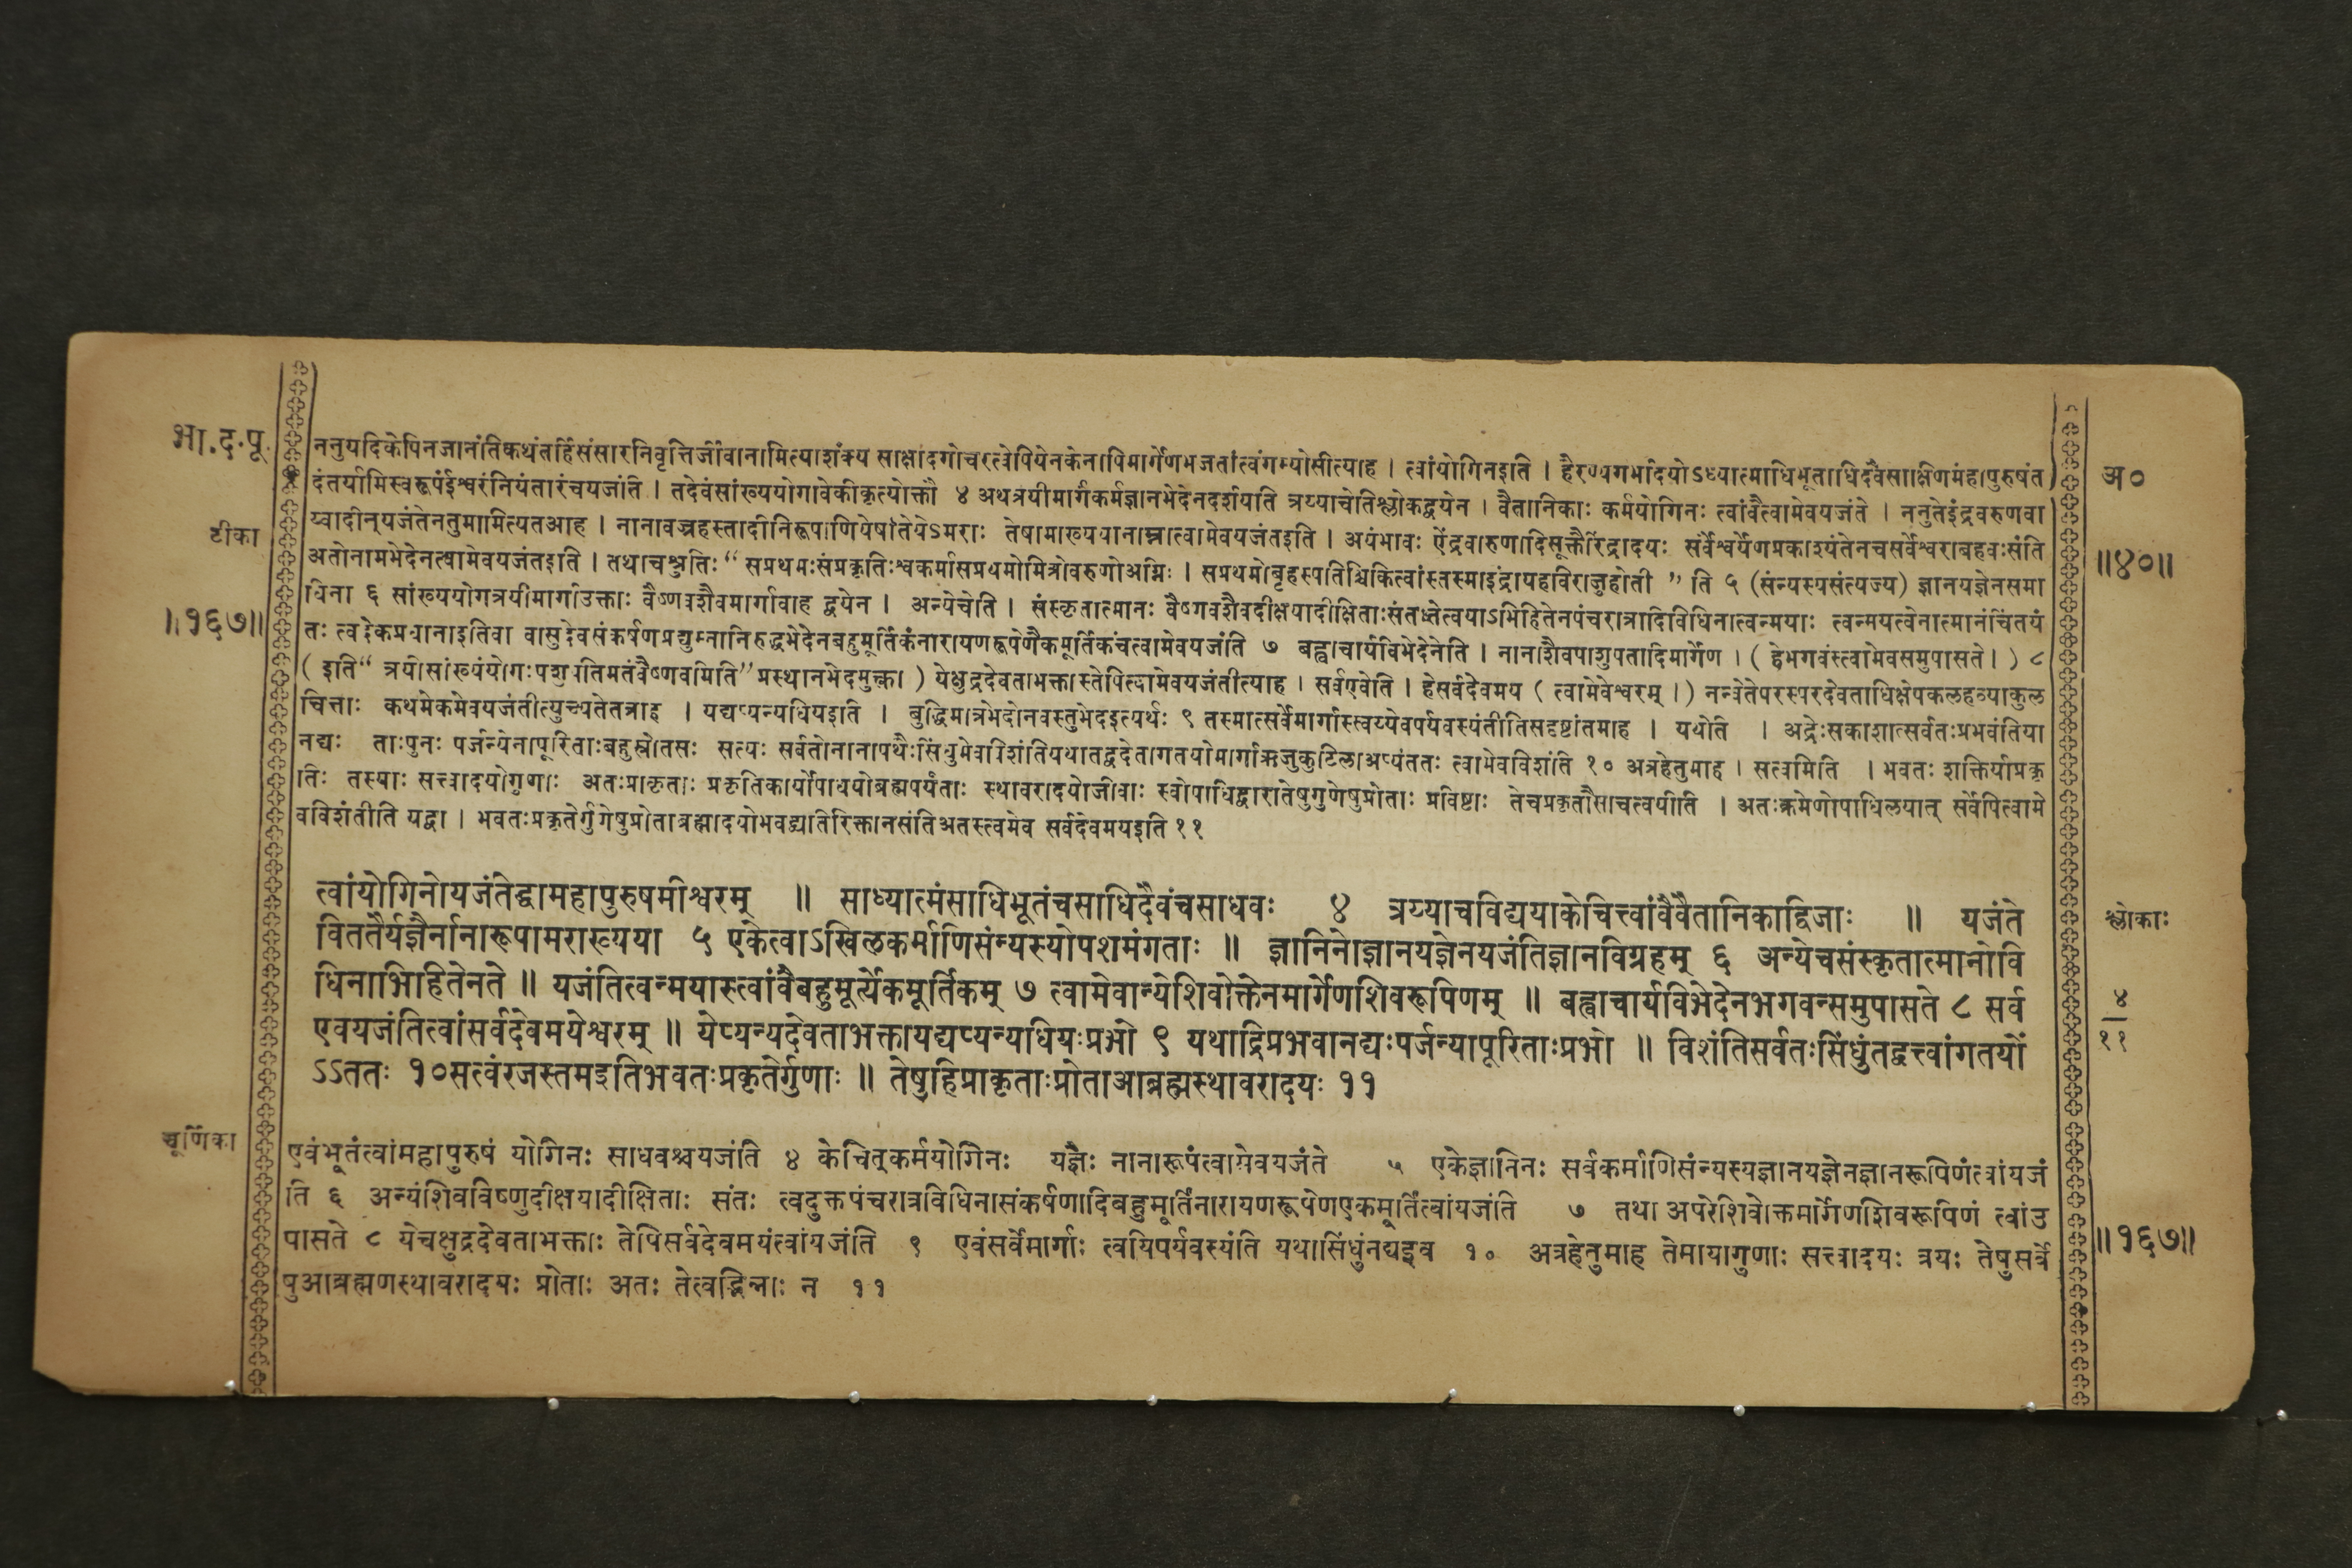 भा.द.पू.
ननुयदिकेपिनजानंतिकथंतर्हिसंसारनिवृत्तिर्जीवानामित्याशंक्य साक्षादगोचरत्वेपियेनकेनापिमार्गेणभजतांत्वंगम्योसीत्याह । त्वांयोगिनइति । हैरण्यगर्भादयोऽध्यात्माधिभूताधिदैवसाक्षिणंमहापुरुषंत
अ०
दंतर्यामिस्वरूपंईश्वरंनियंतारंचयजंति । तदेवंसांख्ययोगावेकीकृत्योक्तौ ४ अथत्रयीमार्गंकर्मज्ञानभेदेनदर्शयति त्रय्याचेतिश्लोकद्वयेन । वैतानिकाः कर्मयोगिनः त्वांवैत्वामेवयजंते । ननुतेइंद्रवरुणवा
टीका
य्वादीन्यजंतेनतुमामित्यतआह । नानावज्रहस्तादीनिरूपाणियेषांतेयेऽमराः तेषामाख्ययानाम्नात्वामेवयजंतइति । अयंभावः ऐंद्रवारुणादिसूक्तैरिंद्रादयः सर्वैश्वर्येणप्रकाश्यंतेनचसर्वेश्वराबहवःसंति
॥४०॥
अतोनामभेदेनत्वामेवयजंतइति । तथाचश्रुतिः “ सप्रथमःसंप्रकृतिःश्वकर्मासप्रथमोमित्रोवरुणोअग्निः । सप्रथमोबृहस्पतिश्चिकित्वांस्तस्माइंद्रायहविराजुहोती ” ति ५ (संन्यस्यसंत्यज्य) ज्ञानयज्ञेनसमा
॥१६७॥
धिना ६ सांख्ययोगत्रयीमार्गाउक्ताः वैष्णवशैवमार्गावाह द्वयेन । अन्येचेति । संस्कृतात्मानः वैष्णवशैवदीक्षयादीक्षिताःसंतस्तेत्वयाऽभिहितेनपंचरात्रादिविधिनात्वन्मयाः त्वन्मयत्वेनात्मानंचिंतयं
तः त्वदेकप्रधानाइतिवा वासुदेवसंकर्षणप्रद्युम्नानिरुद्धभेदेनबहुमूर्तिकंनारायणरूपेणैकमूर्तिकंचत्वामेवयजंति ७ बह्वाचार्यविभेदेनेति । नानाशैवपाशुपतादिमार्गेण । ( हेभगवंस्त्वामेवसमुपासते । ) ८
( इति “ त्रयीसांख्यंयोगःपशुपतिमतंवैष्णवमिति” प्रस्थानभेदमुक्त्वा ) येक्षुद्रदेवताभक्तास्तेपित्वामेवयजंतीत्याह । सर्वएवेति । हेसर्वदेवमय ( त्वामेवेश्वरम् ।) नन्वेतेपरस्परदेवताधिक्षेपकलहव्याकुल
चित्ताः कथमेकमेवयजंतीत्युच्यतेतत्राह । यद्यप्यन्यधियइति । बुद्धिमात्रभेदोनवस्तुभेदइत्यर्थः ९ तस्मात्सर्वेमार्गास्त्वय्येवपर्यवस्यंतीतिसदृष्टांतमाह । यथेति । अद्रेःसकाशात्सर्वतःप्रभवंतिया
नद्यः ताःपुनः पर्जन्येनापूरिताःबहुस्रोतसः सत्यः सर्वतोनानापथैःसिंधुमेवविशंतियथातद्वदेतागतयोमार्गाऋजुकुटिलाअप्यंततः त्वामेवविशंति १० अत्रहेतुमाह । सत्वमिति । भवतः शक्तिर्याप्रकृ
तिः तस्याः सत्त्वादयोगुणाः अतःप्राकृताः प्रकृतिकार्योपाधयोब्रह्मपर्यंताः स्थावरादयोजीवाः स्वोपाधिद्वारातेषुगुणेषुप्रोताः प्रविष्टाः तेचप्रकृतौसाचत्वयीति । अतःक्रमेणोपाधिलयात् सर्वेपित्वामे
वविशंतीति यद्वा । भवतःप्रकृतेर्गुणेषुप्रोताब्रह्मादयोभवद्व्यतिरिक्तानसंतिअतस्त्वमेव सर्वदेवमयइति ११
त्वांयोगिनोयजंतेद्वामहापुरुषमीश्वरम् ॥ साध्यात्मंसाधिभूतंचसाधिदैवंचसाधवः ४ त्रय्याचविद्ययाकेचित्त्वांवैवैतानिकाद्विजाः ॥ यजंते
श्लोकाः
विततैर्यज्ञैर्नानारूपामराख्यया ५ एकेत्वाऽखिलकर्माणिसंन्यस्योपशमंगताः ॥ ज्ञानिनोज्ञानयज्ञेनयजंतिज्ञानविग्रहम् ६ अन्येचसंस्कृतात्मानोवि
धिनाभिहितेनते ॥ यजंतित्वन्मयास्त्वांवैबहुमूर्त्येकमूर्तिकम् ७ त्वामेवान्येशिवोक्तेनमार्गेणशिवरूपिणम् ॥ बह्वाचार्यविभेदेनभगवन्समुपासते ८ सर्व
४
एवयजंतित्वांसर्वदेवमयेश्वरम् ॥ येप्यन्यदेवताभक्तायद्यप्यन्यधियःप्रभो ९ यथाद्रिप्रभवानद्यःपर्जन्यापूरिताःप्रभो ॥ विशंतिसर्वतःसिंधुंतद्वत्त्वांगतयों
११
ऽऽततः १०सत्वंरजस्तमइतिभवतःप्रकृतेर्गुणाः ॥ तेषुहिप्राकृताःप्रोताआब्रह्मस्थावरादयः ११
चूर्णिका
एवंभूतंत्वांमहापुरुषं योगिनः साधवश्चयजंति ४ केचित्कर्मयोगिनः यज्ञैः नानारूपंत्वामेवयजंते ५ एकेज्ञानिनः सर्वकर्माणिसंन्यस्यज्ञानयज्ञेनज्ञानरूपिणंत्वांयजं
ति ६ अन्यंशिवविष्णुदीक्षयादीक्षिताः संतः त्वदुक्तपंचरात्रविधिनासंकर्षणादिबहुमूर्तिंनारायणरूपेणएकमूर्तिंत्वांयजंति ७ तथा अपरेशिवोक्तमार्गेणशिवरूपिणं त्वांउ
पासते ८ येचक्षुद्रदेवताभक्ताः तेपिसर्वदेवमयंत्वांयजंति ९ एवंसर्वेमार्गाः त्वयिपर्यवस्यंति यथासिंधुंनद्यइव १० अत्रहेतुमाह तेमायागुणाः सत्त्वादयः त्रयः तेषुसर्वे
॥१६७॥
षुआब्रह्मणस्थावरादयः प्रोताः अतः तेत्वद्भिन्नाः न ११